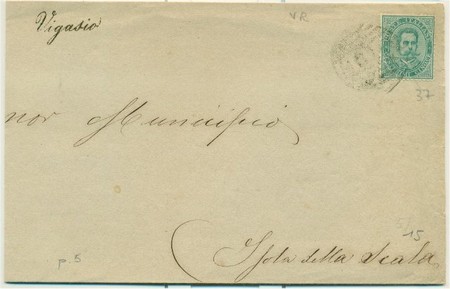 VR
Vigasio
37
nor Municipio
15
Isola della Scala
p. 5